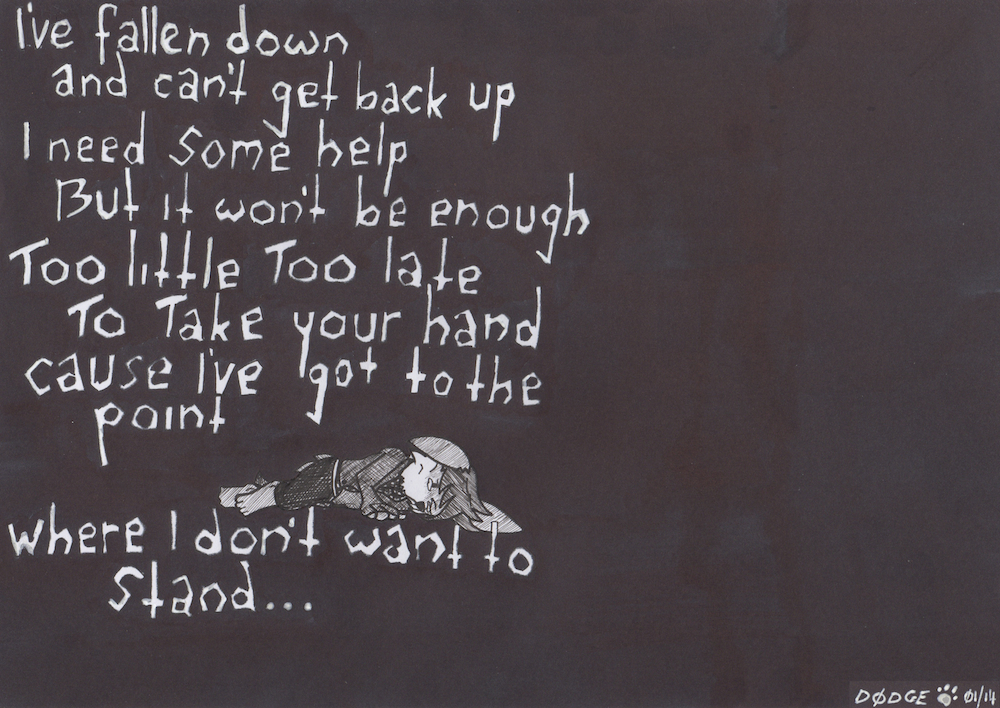 I've fallen down
and can't get back up
I need some help
But it won't be enough
Too little Too late
To Take your hand
cause I've got to the
point
where I don't want to
stand...
DØDGE 01/14